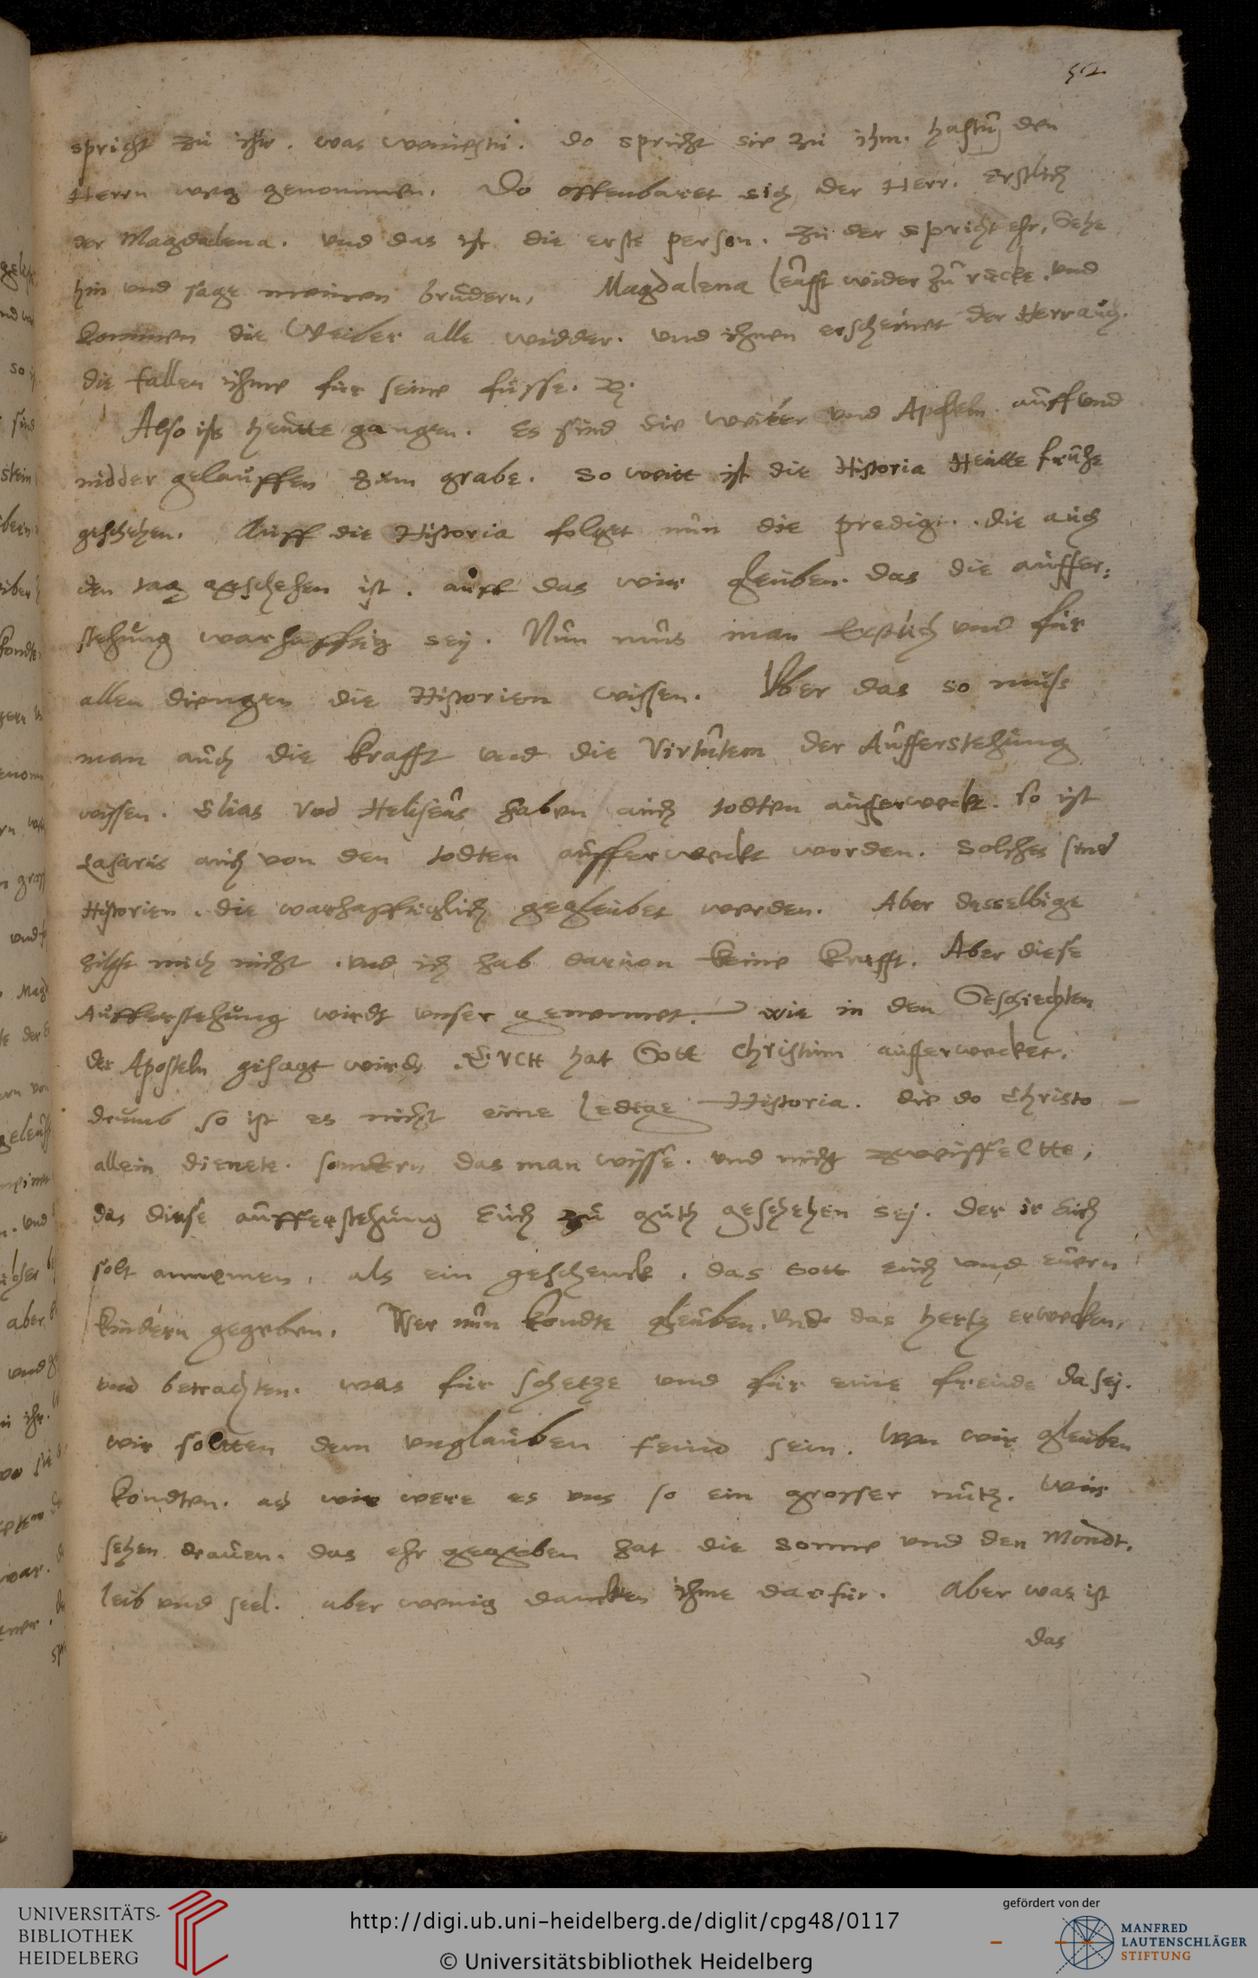 52
spricht zu ihr. was weinestu. do spricht sie zu ihm. hastu den
Herrn weg genommen. Do offenbaret sich der Herr. Erstlich
der Magdalena. vnd das ist die erste person. zu der spricht ehr, Gehe
hin vnd sage meinen brudern, Magdalena leufft wider zu rucke. vnd
kommen die Weiber alle widder. vnd ihnen erscheinet der Herr auch.
die fallen ihme fur seine fusse. ꝛc.
Also ists heutte gangen. Es sind die weiber vnd Aposteln auff vnd
nidder gelauffen zum grabe. so weitt ist die Historia Heutte fruhe
geschehen. Auff die Historia folget nun die predigt. die auch
den tag geschehen ist. auff das wir gleuben. das die auffer:
stehung warhafftig sey. Nun mus man Erstlich vnd fur
allen diengen die Historien wissen. Vber das so muss
man auch die krafft vnd die Virtutem der Aufferstehung
wissen. Elias vnd Heliseus haben auch todten aufferweckt. so ist
Lasarus auch von den todten aufferweckt worden. solches sind
Historien. die warhafftiglich gegleubet werden. Aber dasselbige
hilfft mich nicht. vnd ich hab daruon keine krafft. Aber diese
Aufferstehung wirdt vnser genennet. wie in den Geschiechten
der Aposteln gesagt wirdt. Euch hat Gott Christum aufferwecket.
drumb so ist es nicht eine ledige Historia. die do Christo
allein dienete. sondern das man wisse. vnd nicht zweiffeltte,
das diese aufferstehung Euch zu guth geschehen sej. der ir Euch
solt annemen. als ein geschenck. das Gott euch vnd euern
kindern gegeben. Wer nun kondte gleuben. vnd das hertz erwecken,
vnd betrachten. was fur schetze vnd fur eine freude da sej.
wir soltten dem vnglauben feind sein. Wen wir gleuben
kondten. ach wie were es vns so ein grosser nutz. Wir
sehen draussen. das ehr gegeben hat die sonne vnd den Mondt.
leib vnd seel. aber wenig dancken ihme darfur. Aber was ist
das
UNIVERSITÄTS-
BIBLIOTHEK
HEIDELBERG
http://digi.ub.uni-heidelberg.de/diglit/cpg48/0117
© Universitätsbibliothek Heidelberg
gefördert von der
MANFRED
LAUTENSCHLÄGER
STIFTUNG